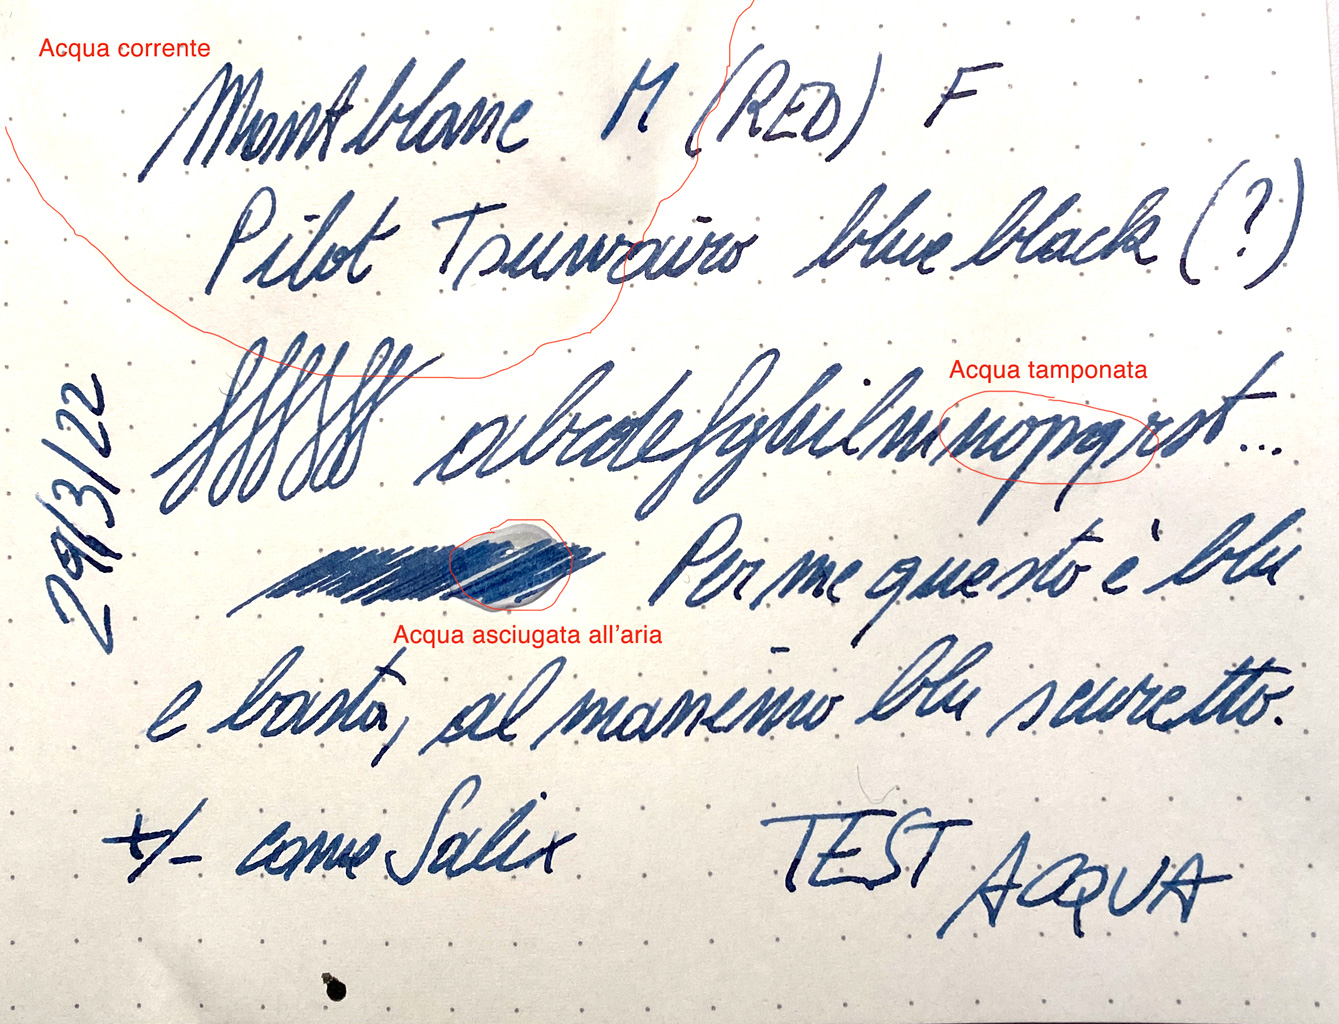 Acqua corrente
Montblanc M (RED) F
Pilot Tsuwairo blue black (?)
abcdefghilmnopqrst...
Acqua tamponata
29/3/22
Per me questo è blu
Acqua asciugata all'aria
e basta, al massimo blu scuretto.
+/- come Salix
TEST ACQUA